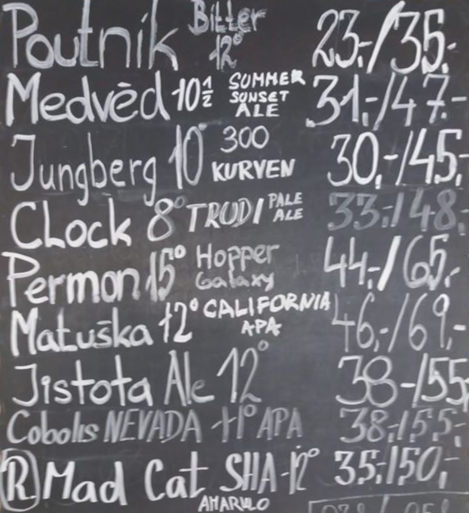 Poutník Bitter 12° 23,-/35,-
Medvěd 10½ SUMMER SUNSET ALE 31,-/47,-
Jungberg 10° 300 KURVEN 30,-/45,-
CLock 8° TRUDI PALE ALE 33,-/48,-
Permon 15° Hopper Galaxy 44,-/65,-
Matuška 12° CALIFORNIA APA 46,-/69,-
Jistota Ale 12° 38-/55
Cobolis NEVADA 11° APA 38,-/55,-
Ⓡ Mad Cat SHA-12° AMARILLO 35,-/50,-